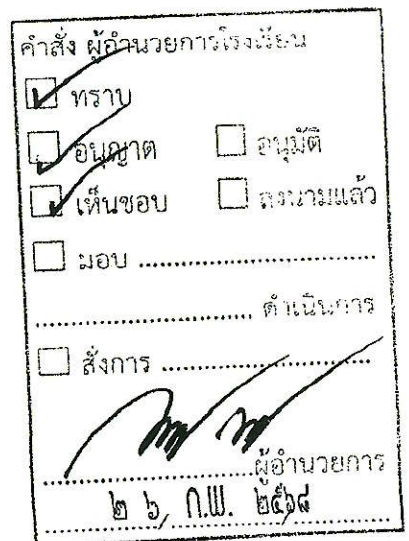 คำสั่ง ผู้อำนวยการโรงเรียน
ทราบ
อนุญาต อนุมัติ
เห็นชอบ ลงนามแล้ว
มอบ ..............................
........................... ดำเนินการ
สั่งการ ..........................
..........................ผู้อำนวยการ
๒ ๖ ก.พ. ๒๕๖๘